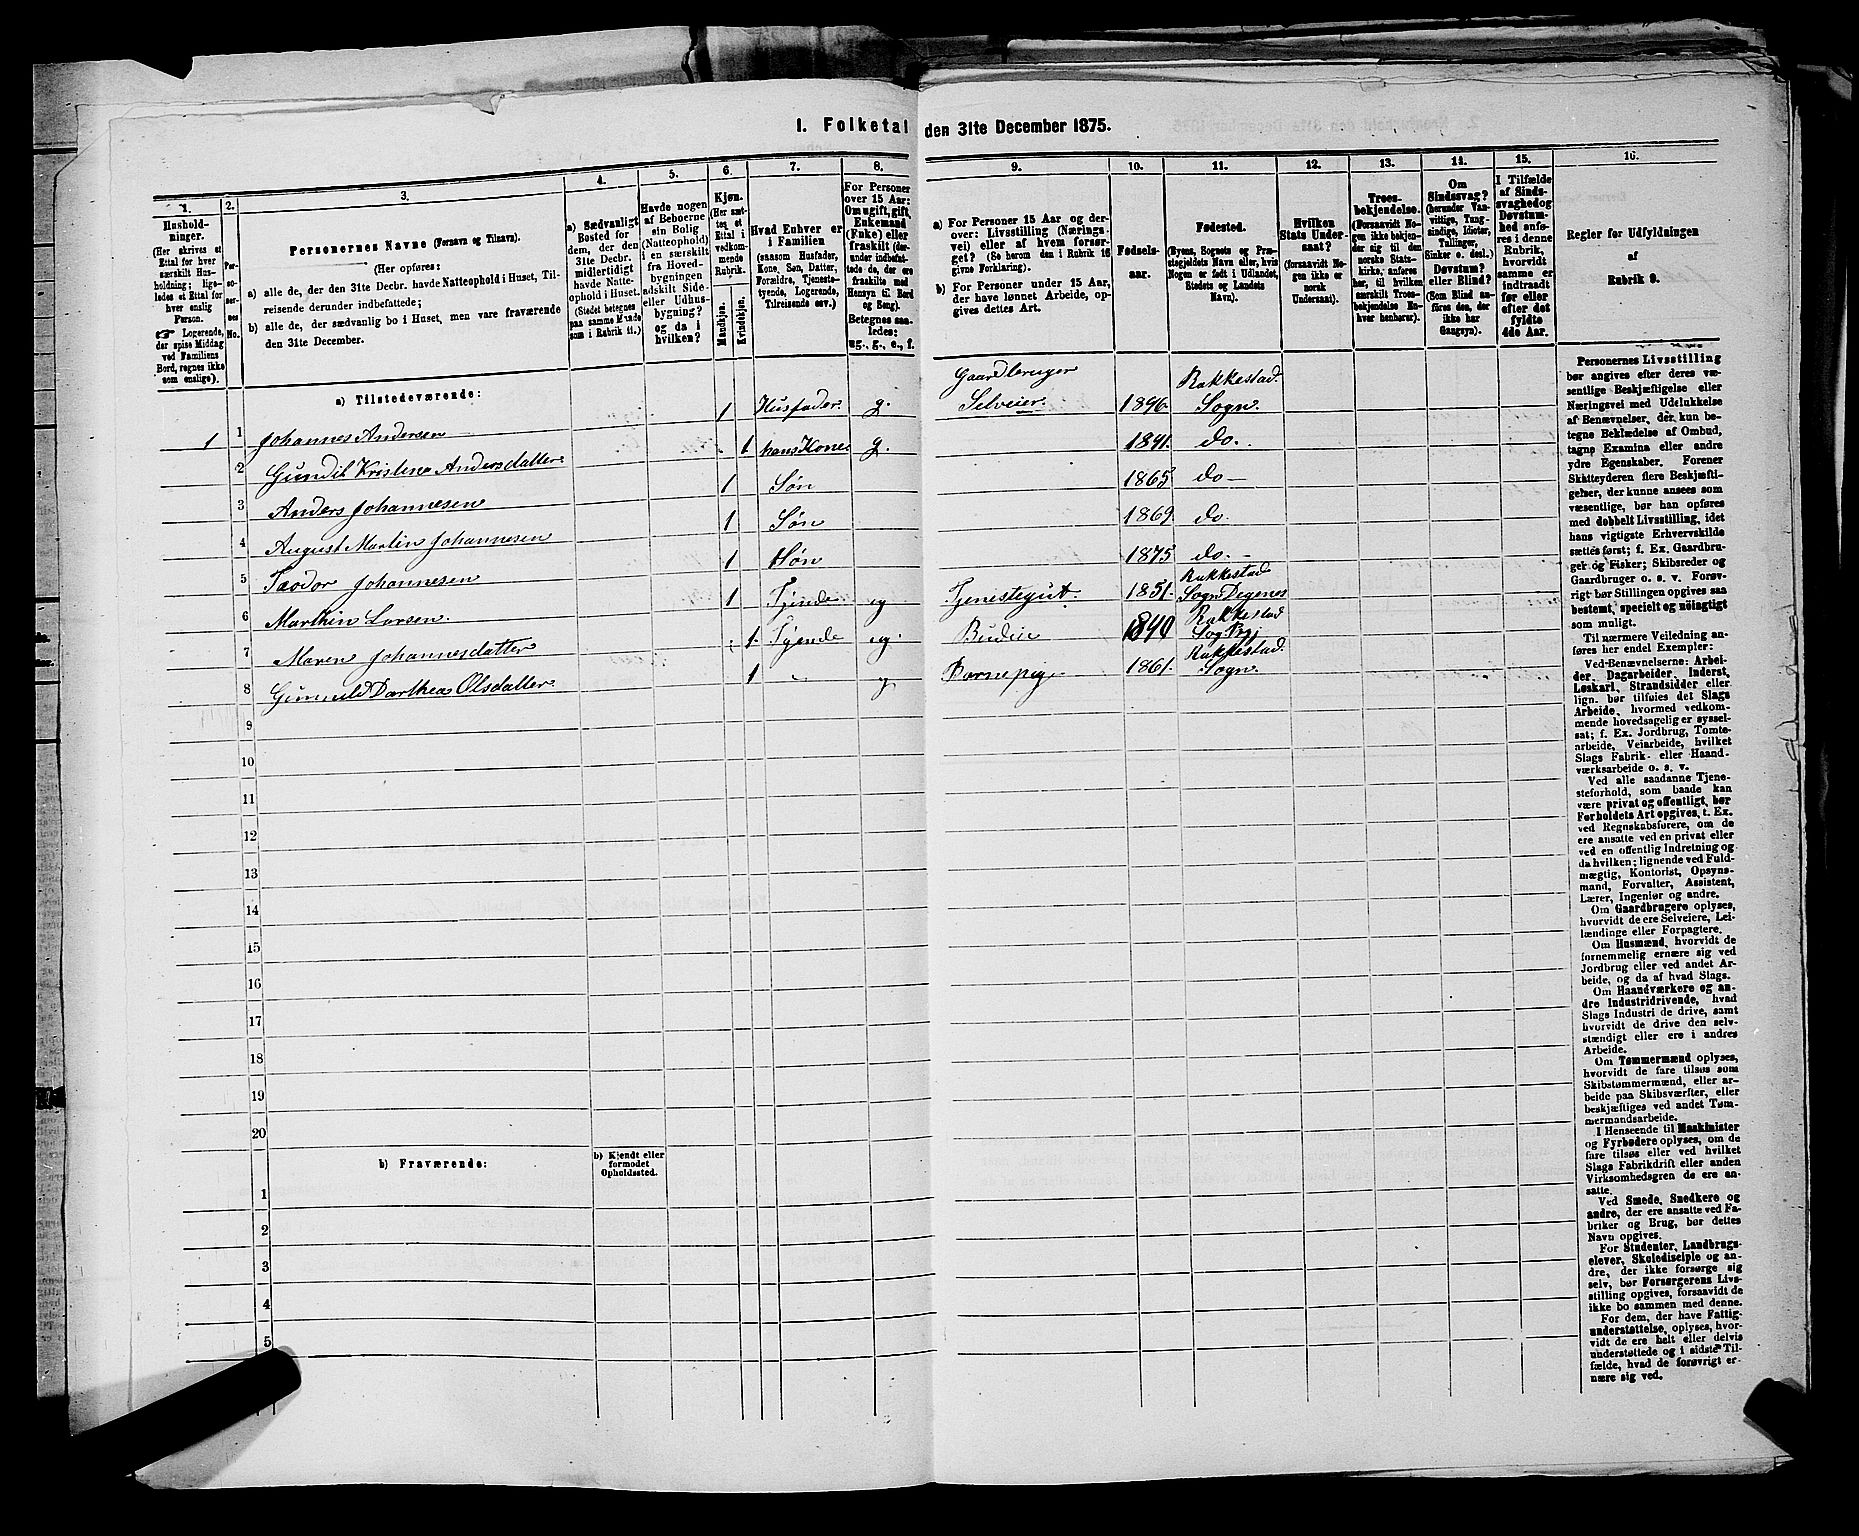 1. Folketal den 31te December 1875.
1.
Husholdninger.
(Her skrives et
Ettal for hver
særskilt Husholdning;
ligeledes et Ettal for
hver enslig
Person.
☞ Logerende,
der spise Middag
ved Familiens
Bord, regnes ikke
som enslige).
2.
Personernes No.
3.
Personernes Navne (Fornavn og Tilnavn).
(Her opføres:
a) alle de, der den 31te Decbr. havde Natteophold i Huset, Tilreisende derunder indbefattede;
b) alle de, der sædvanlig bo i Huset, men vare fraværende
den 31te December.
4.
a) Sædvanligt
Bosted for
dem, der den
31te Decbr.
midlertidigt
havde Natteophold i Huset.
(Stedet betegnes
paa samme Maade
som i Rubrik 11.)
5.
Havde nogen
af Beboerne
sin Bolig
(Natteophold)
i en særskilt
fra Hovedbygningen
adskilt Side-
eller Udhusbygning?
og da i
hvilken?
6.
Kjøn.
(Her sættes et
Ettal i
vedkommende
Rubrik.
Mandkjøn.
Kvindekjøn.
7.
Hvad Enhver er
i Familien
(saasom Husfader,
Kone, Søn, Datter,
Forældre, Tjenestetyende, Logerende,
Tilreisende osv.)
8.
For Personer
over 15 Aar:
Om ugift, gift,
Enkemand
(Enke) eller
fraskilt (derunder indbefattede de, der ere
fraskilte med
Hensyn til Bord
og Seng).
Betegnes saaledes:
ug., g., e., f.
9.
a) For Personer 15 Aar og derover: Livsstilling (Næringsvei) eller af hvem forsørget? (Se herom den i Rubrik 16
givne Forklaring).
b) For Personer under 15 Aar,
der have lønnet Arbeide, opgives dettes Art.
10.
Fødselsaar.
11.
Fødested.
(Byens, Sognets og Præstegjeldets Navn eller, hvis
Nogen er født i Udlandet,
Stedets og Landets
Navn).
12.
Hvilken
Stats Undersaat?
(forsaavidt Nogen ikke er
norsk
Undersaat).
13.
Troesbekjendelse.
(Forsaavidt Nogen ikke bekjender sig til den
norske Statskirke, anføres
her, til hvilken
særskilt Troesbekjendelse Enhver henhører).
14.
Om
Sindssvag?
(herunder Vanvittige, Tungsindige, Idioter,
Tullinger,
Sinker o. desl.)
Døvstum?
eller Blind?
(Som Blind anføres den, der
ikke har
Gangsyn).
15.
I Tilfælde
af Sindssvaghed og
Døvstumhed anføres i denne
Rubrik,
hvorvidt
samme er
indtraadt
før eller
efter det
fyldte
4de Aar.
16.
Regler for Udfyldningen
af
Rubrik 9.
a) Tilstedeværende:
1 1 Johannes Andersen 1 Husfader g. Gaardbruger Selveier. 1846 Rakkestad. Sogn.
2 Gundil Kristena Andersdatter 1 hans Kone g. 1841. do.
3 Anders Johannesen 1 Søn 1865 do
4 August Martin Johannesen 1 Søn 1869 do.
5 Tæodor Johannesen 1 Søn 1875 do.
6 Marthin Larsen. 1 Tjende ug Tjenestegut. 1851. Rakkestad Sogn Degenes
7 Maren Johannesdatter 1 Tjende ug. Budeie 1840 Rakkestad
8 Gunnild Dorthea Olsdatter 1 " ug Barnepige 1861. Rakkestad. Sogn.
9
10
11
12
13
14
15
16
17
18
19
20
b) Fraværende:
b) Kjendt eller
formodet
Opholdssted.
1
2
3
4
5
Personernes Livsstilling
bør angives efter deres væsentlige Beskjæftigelse eller
Næringsvei med Udelukkelse
af Benævnelser, der kun betegne Beklædelse af Ombud,
tagne Examina eller andre
ydre Egenskaber. Forener
Skatteyderen flere Beskjæftigelser, der kunne ansees som
væsentlige, bør han opføres
med dobbelt Livsstilling, idet
hans vigtigste Erhvervskilde
sættes først; f. Ex. Gaardbruger og Fisker; Skibsreder og
Gaardbruger o. s. v. Forøvrigt bør Stillingen opgives saa
bestemt, specielt og nöiagtigt
som muligt.
Til nærmere Veiledning anføres her endel Exempler:
Ved Benævnelserne: Arbeider, Dagarbeider, Inderst,
Løskarl, Strandsidder eller
lign. bør tilføies det Slags
Arbeide, hvormed vedkommende hovedsagelig er sysselsat; f. Ex. Jordbrug, Tomtearbeide, Veiarbeide, hvilket
Slags Fabrik- eller Haandværksarbeide o. s. v.
Ved alle saadanne Tjenesteforhold, som baade kan
være privat og offentligt, bør
Forholdets Art opgives, t. Ex.
ved Regnskabsførere, om de
ere ansatte ved en privat eller
ved en offentlig Indretning og
da hvilken; lignende ved Fuldmægtig, Kontorist, Opsynsmand, Forvalter, Assistent,
Lærer, Ingeniør og andre.
Om Gaardbrugere oplyses,
hvorvidt de ere Selveiere, Leilændinge eller Forpagtere.
Om Husmænd, hvorvidt de
fornemmelig ernære sig ved
Jordbrug eller ved andet Arbeide, og da af hvad Slags.
Om Haandværkere og andre Industridrivende, hvad
Slags Industri de drive, samt
hvorvidt de drive den selvstændigt eller ere i andres
Arbeide.
Om Tømmermænd oplyses,
hvorvidt de fare tilsøs som
Skibstømmermænd, eller arbeide paa Skibsværfter, eller
beskjæftiges ved andet Tømmermandsarbeide.
I Henseende til Maskinister
og Fyrbødere oplyses, om de
fare tilsøs eller ved hvilket
Slags Fabrikdrift eller anden
Virksomhedsgren de ere ansatte.
Ved Smede, Snedkere og
andre, der ere ansatte ved Fabriker og Brug, bør dettes
Navn opgives.
For Studenter, Landbrugselever, Skoledisciple og andre, der ikke forsørge sig
selv, bør Forsørgerens Livsstilling opgives, forsaavidt de
ikke bo sammen med denne.
For dem, der have Fattigunderstøttelse, oplyses, hvorvidt de ere helt eller delvis
understøttede og i sidste Tilfælde, hvad de forøvrigt ernære sig ved.